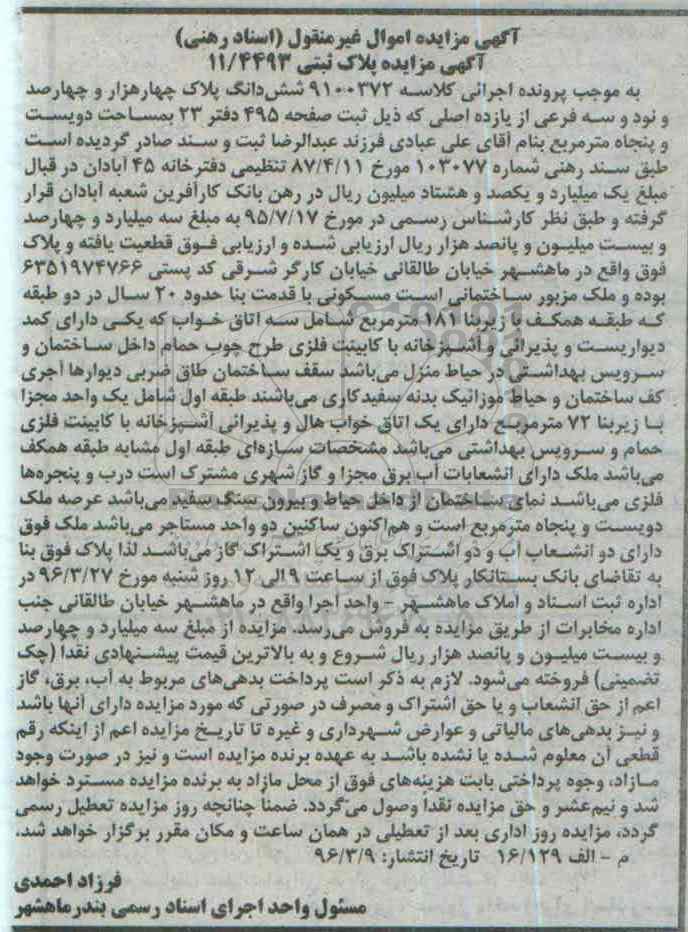 آگهی مزایده اموال غیرمنقول (اسناد رهنی)
آگهی مزایده پلاک ثبتی ۱۱/۴۴۹۳
به موجب پرونده اجرائی کلاسه ۹۱۰۰۳۷۲ شش‌دانگ پلاک چهارهزار و چهارصد
و نود و سه فرعی از یازده اصلی که ذیل ثبت صفحه ۴۹۵ دفتر ۲۳ بمساحت دویست
و پنجاه مترمربع بنام آقای علی عبادی فرزند عبدالرضا ثبت و سند صادر گردیده است
طبق سند رهنی شماره ۱۰۳۰۷۷ مورخ ۸۷/۴/۱۱ تنظیمی دفترخانه ۴۵ آبادان در قبال
مبلغ یک میلیارد و یکصد و هشتاد میلیون ریال در رهن بانک کارآفرین شعبه آبادان قرار
گرفته و طبق نظر کارشناس رسمی در مورخ ۹۵/۷/۱۷ به مبلغ سه میلیارد و چهارصد
و بیست میلیون و پانصد هزار ریال ارزیابی شده و ارزیابی فوق قطعیت یافته و پلاک
فوق واقع در ماهشهر خیابان طالقانی خیابان کارگر شرقی کد پستی ۶۳۵۱۹۷۴۷۶۶
بوده و ملک مزبور ساختمانی است مسکونی با قدمت بنا حدود ۲۰ سال در دو طبقه
که طبقه همکف با زیربنا ۱۸۱ مترمربع شامل سه اتاق خواب که یکی دارای کمد
دیواریست و پذیرائی و آشپزخانه با کابینت فلزی طرح چوب حمام داخل ساختمان و
سرویس بهداشتی در حیاط منزل می‌باشد سقف ساختمان طاق ضربی دیوارها آجری
کف ساختمان و حیاط موزائیک بدنه سفیدکاری می‌باشند طبقه اول شامل یک واحد مجزا
با زیربنا ۷۲ مترمربع دارای یک اتاق خواب هال و پذیرائی آشپزخانه با کابینت فلزی
حمام و سرویس بهداشتی می‌باشد مشخصات سازه‌ای طبقه اول مشابه طبقه همکف
می‌باشد ملک دارای انشعابات آب برق مجزا و گاز شهری مشترک است درب و پنجره‌ها
فلزی می‌باشد نمای ساختمان از داخل حیاط و بیرون سنگ سفید می‌باشد عرصه ملک
دویست و پنجاه مترمربع است و هم‌اکنون ساکنین دو واحد مستاجر می‌باشد ملک فوق
دارای دو انشعاب آب و دو اشتراک برق و یک اشتراک گاز می‌باشد لذا پلاک فوق بنا
به تقاضای بانک بستانکار پلاک فوق از ساعت ۹ الی ۱۲ روز شنبه مورخ ۹۶/۳/۲۷ در
اداره ثبت اسناد و املاک ماهشهر - واحد اجرا واقع در ماهشهر خیابان طالقانی جنب
اداره مخابرات از طریق مزایده به فروش می‌رسد. مزایده از مبلغ سه میلیارد و چهارصد
و بیست میلیون و پانصد هزار ریال شروع و به بالاترین قیمت پیشنهادی نقدا (چک
تضمینی) فروخته می‌شود. لازم به ذکر است پرداخت بدهی‌های مربوط به آب، برق، گاز
اعم از حق انشعاب و یا حق اشتراک و مصرف در صورتی که مورد مزایده دارای آنها باشد
و نیز بدهی‌های مالیاتی و عوارض شهرداری و غیره تا تاریخ مزایده اعم از اینکه رقم
قطعی آن معلوم شده یا نشده باشد به عهده برنده مزایده است و نیز در صورت وجود
مازاد، وجوه پرداختی بابت هزینه‌های فوق از محل مازاد به برنده مزایده مسترد خواهد
شد و نیم‌عشر و حق مزایده نقدا وصول می‌گردد. ضمناً چنانچه روز مزایده تعطیل رسمی
گردد، مزایده روز اداری بعد از تعطیلی در همان ساعت و مکان مقرر برگزار خواهد شد.
م - الف ۱۶/۱۲۹ تاریخ انتشار: ۹۶/۳/۹
فرزاد احمدی
مسئول واحد اجرای اسناد رسمی بندرماهشهر